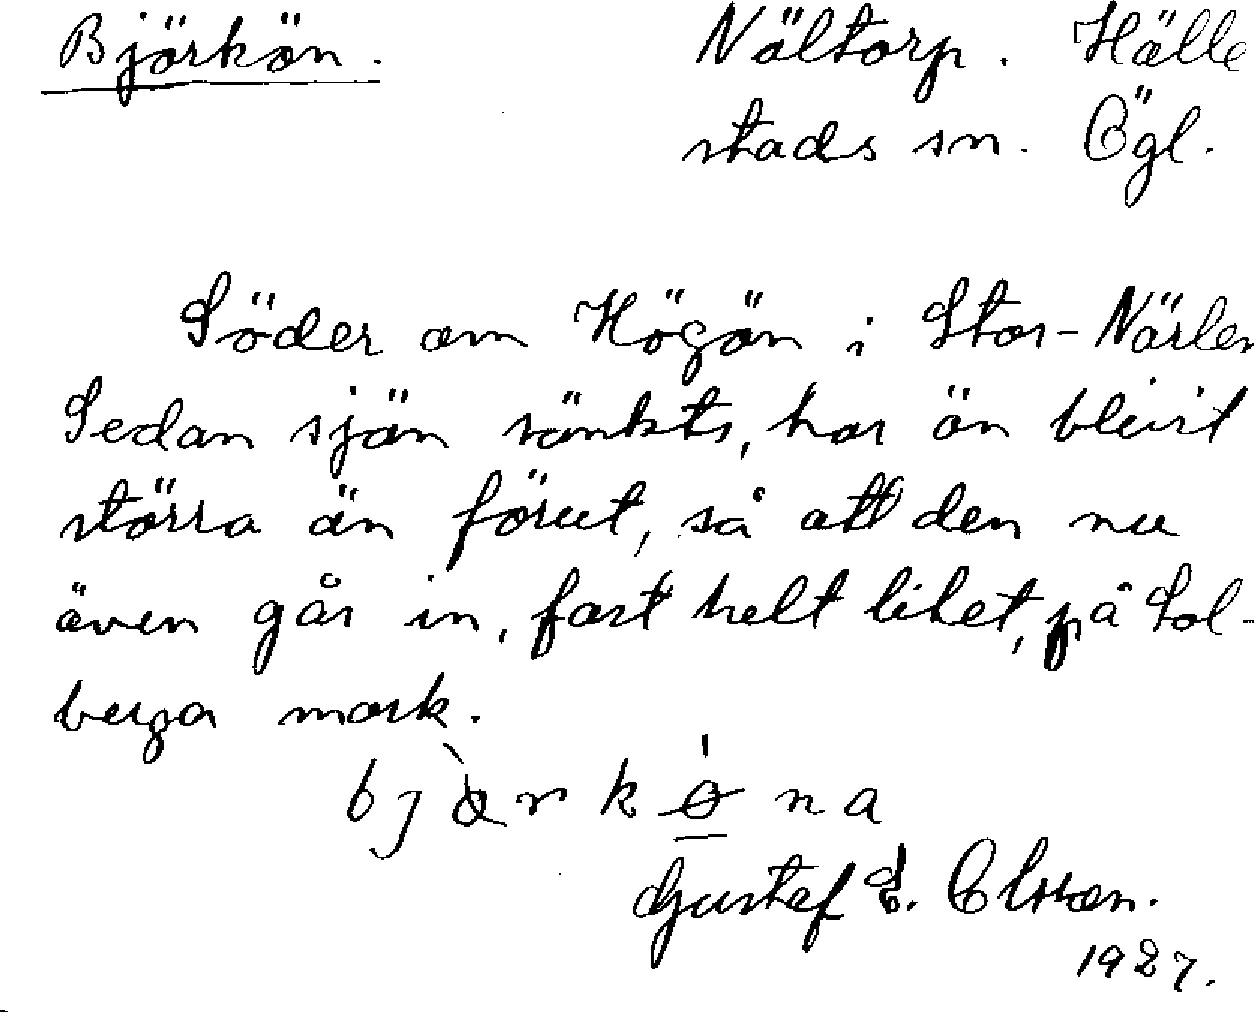 Björkön.
Nältorp. Hälle
stads sn. Ögl.
Söder om Högön i Stor-Närlen
Sedan sjön sänkts, har ön blivit
större än förut, så att den nu
även går in, fast helt litet, på Sol-
berga mark.
Gustef E. Olsson.
1927.